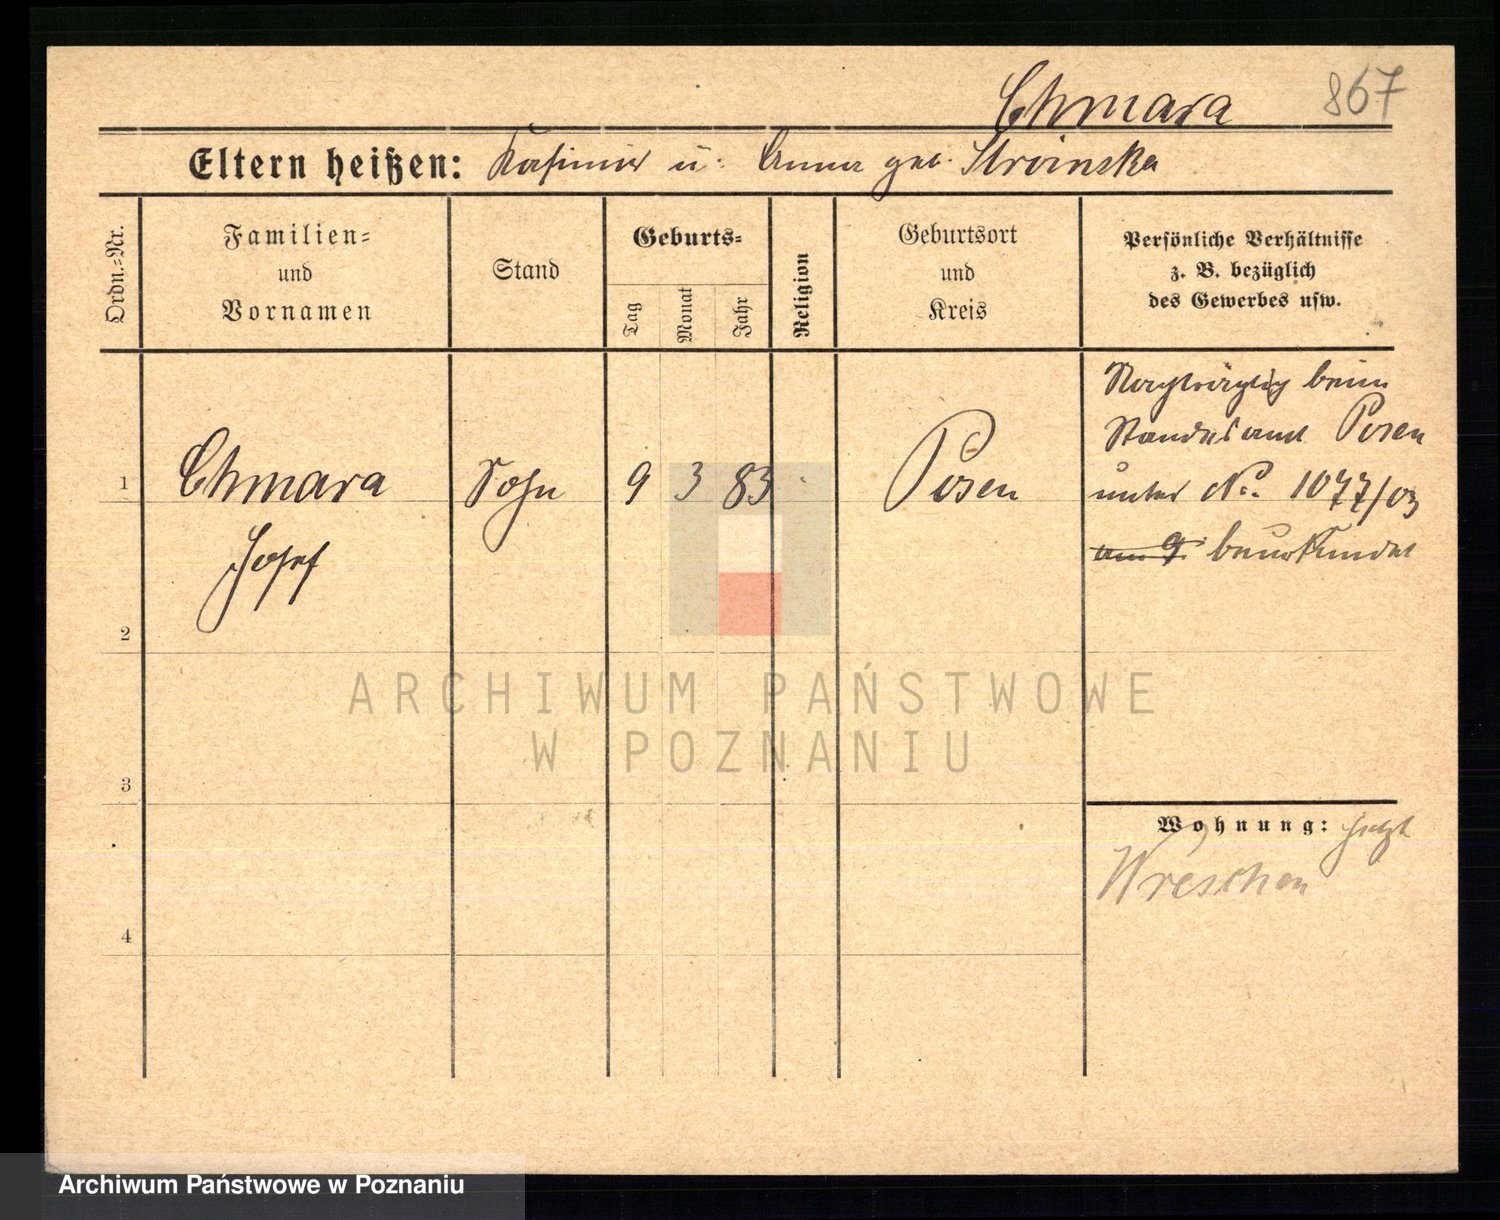 Chmara 867
Eltern heißen: Kasimir u. Anna geb. Stroinska
Ordn.-Nr.
Familien-
und
Vornamen
Stand
Geburts-
Tag
Monat
Jahr
Religion
Geburtsort
und
Kreis
Persönliche Verhältnisse
z. B. bezüglich
des Gewerbes usw.
1 Chmara Sohn 9 3 83 Posen
Josef
Nachträglich beim
Standesamt Posen
unter No. 1077/03
am 9. beurkundet
2
3
4
Wohnung: jetzt
Wreschen
ARCHIWUM PAŃSTWOWE
W POZNANIU
Archiwum Państwowe w Poznaniu